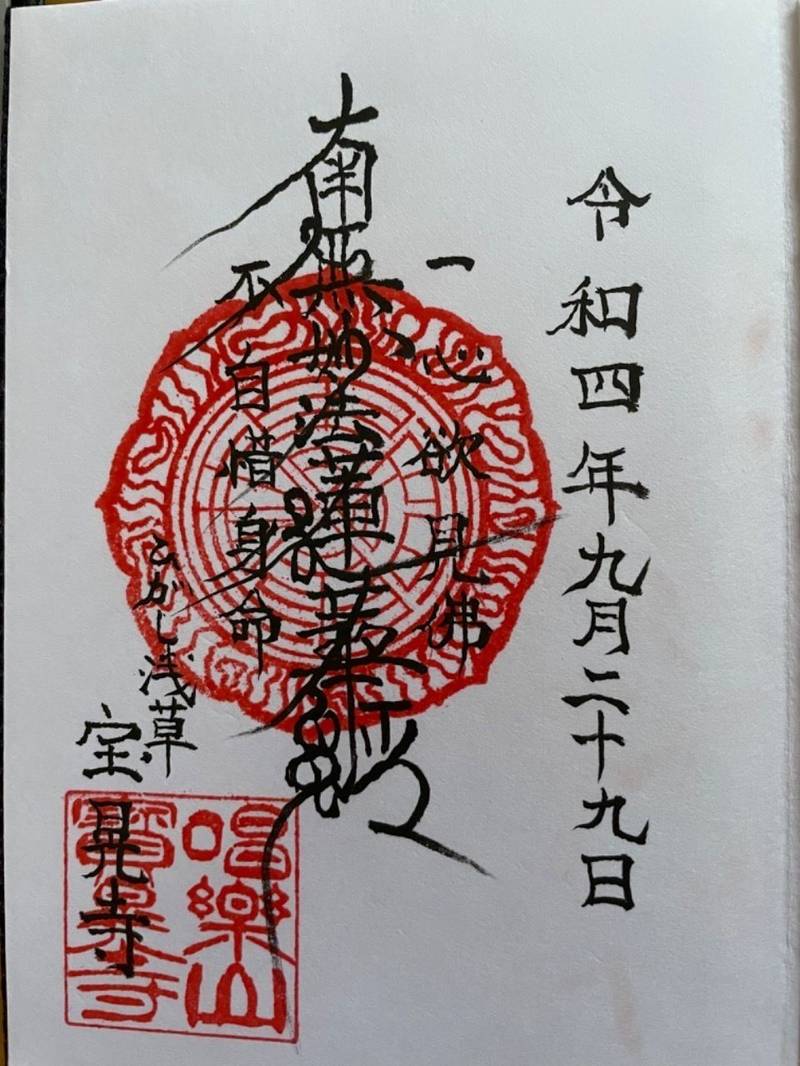 令和四年九月二十九日
一心欲見佛
南無妙法蓮華経
不自惜身命
ひがし浅草
宝晃寺
唱樂山
寶晃寺